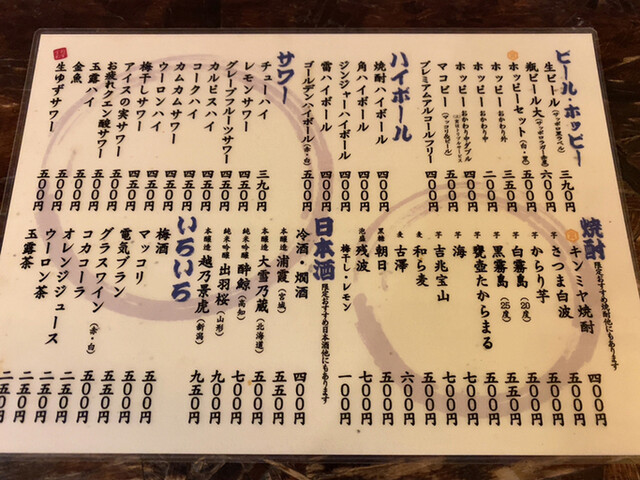 ビール・ホッピー
生ビール(サッポロ黒ラベル) 三九〇円
瓶ビール大(サッポロラガー・赤星) 六〇〇円
ホッピーセット(白・黒) 五五〇円
ホッピー おかわり外 三五〇円
ホッピー おかわりや 二〇〇円
ホッピー おかわりやダブル
マコピー(マッコリ&ビール) 五〇〇円
プレミアムアルコールフリー 四〇〇円
ハイボール
焼酎ハイボール 四〇〇円
角ハイボール 四〇〇円
ジンジャーハイボール 四〇〇円
雷ハイボール 四〇〇円
ゴールデンハイボール(赤・白) 五〇〇円
サワー
チューハイ 三九〇円
レモンサワー 四五〇円
グレープフルーツサワー 四五〇円
カルピスハイ 四五〇円
コークハイ 四五〇円
カムカムサワー 四五〇円
ウーロンハイ 四五〇円
梅干しサワー 四五〇円
アイスの実サワー 五〇〇円
お疲れクエン酸サワー 五〇〇円
玉露ハイ 五〇〇円
金魚 五〇〇円
生ゆずサワー 五〇〇円
焼酎 限定おすすめ焼酎他にもあります
キンミヤ焼酎 四〇〇円
芋 さつま白波 五〇〇円
芋 からり芋 五五〇円
芋 白霧島(20度) 五五〇円
芋 黒霧島(25度) 五〇〇円
芋 甕壺たからまる 七〇〇円
芋 海 七〇〇円
芋 吉兆宝山 七〇〇円
麦 和ら麦 五〇〇円
麦 古澤 六〇〇円
黒糖 朝日 五〇〇円
泡盛 残波 七〇〇円
梅干し・レモン 一〇〇円
日本酒 限定おすすめ日本酒他にもあります
冷酒・燗酒 四〇〇円
本醸造 浦霞(宮城) 五五〇円
本醸造 大雪乃蔵(北海道) 五〇〇円
純米吟醸 酔鯨(高知) 七〇〇円
純米吟醸 出羽桜(山形) 九〇〇円
本醸造 越乃景虎(新潟) 九五〇円
いろいろ
梅酒 五〇〇円
マッコリ 五〇〇円
電気ブラン 五〇〇円
グラスワイン(赤・白) 五〇〇円
コカコーラ 二五〇円
オレンジジュース 二五〇円
ウーロン茶 二五〇円
玉露茶